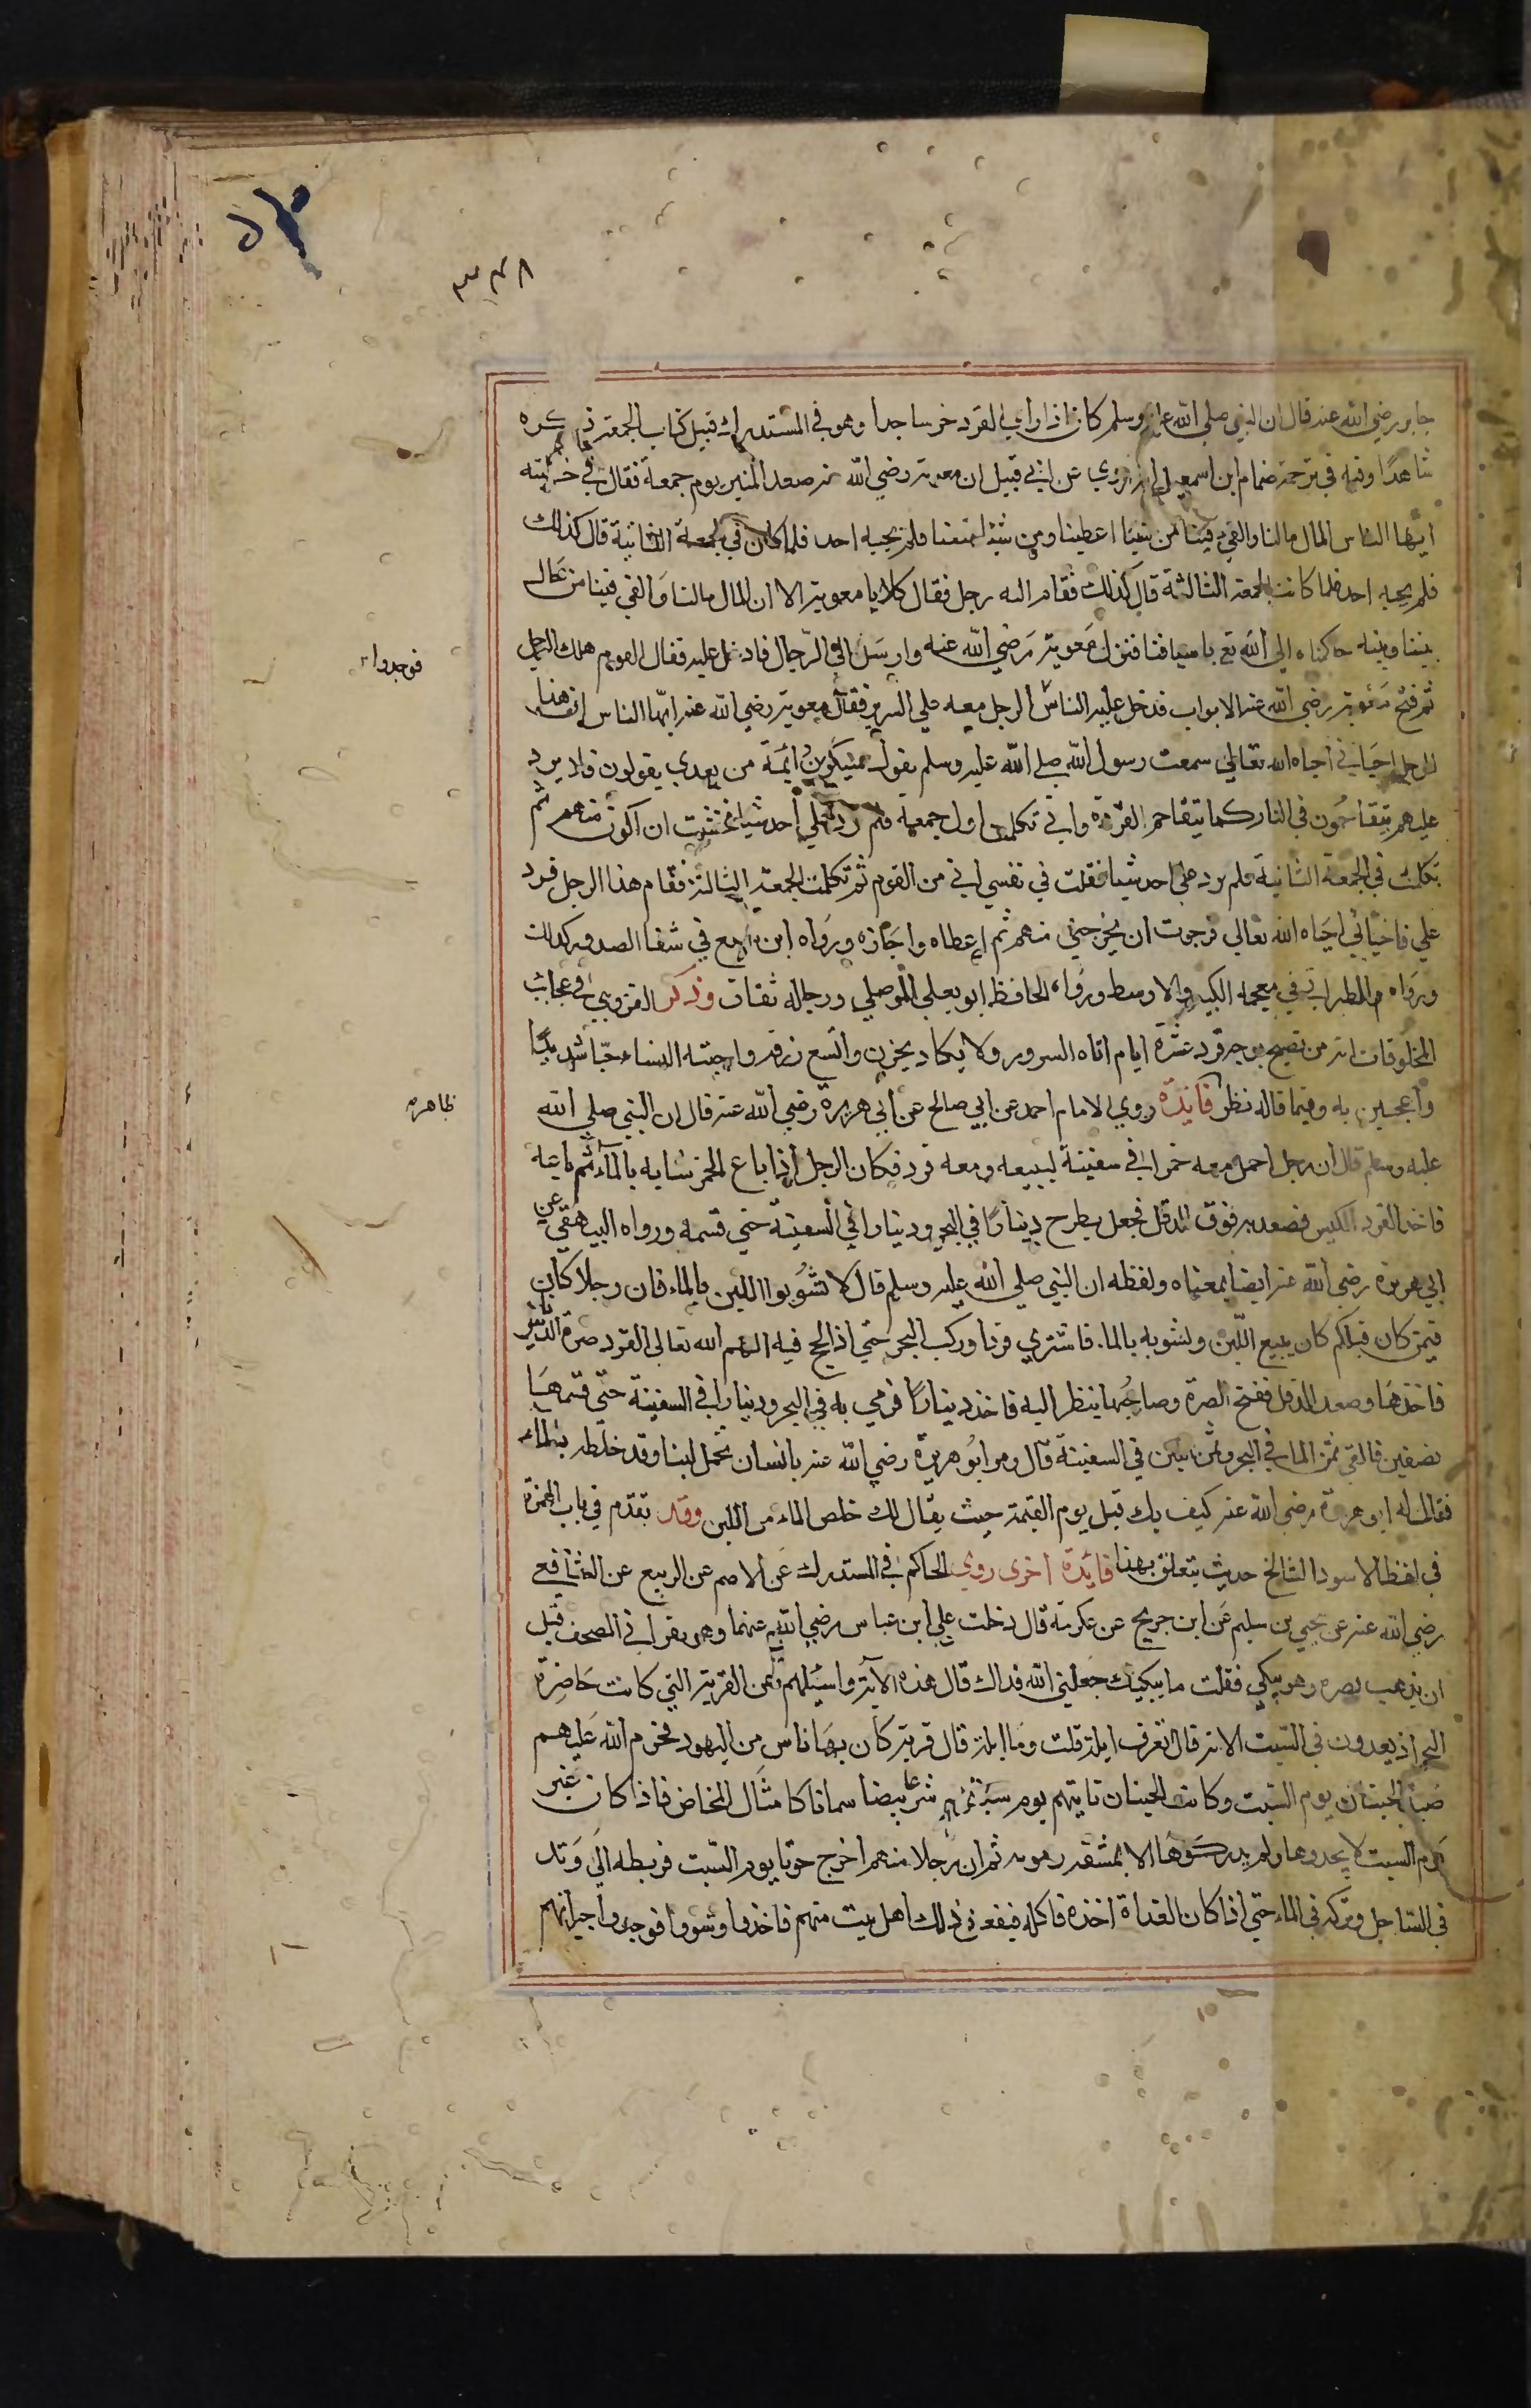 ٣٣٨
جابر رضي الله عنه قال ان النبي صلي الله عليه وسلم كان اذا راي القرد خر ساجدا وهو في المستدرك قبيل كتاب الجمعة ذكره
شاهدًا وفيه في ترجمة ضمام ابن اسمعيل عن ابي قبيل ان معوية رضي الله عنه صعد المنبر يوم جمعة فقال في خطبته
ايها الناس المال مالنا والفيء فينا من شينا اعطينا ومن شئنا منعنا فلم يجبه احد فلما كان في الجمعة الثانية قال كذلك
فلم يجبه احد فلما كانت الجمعة الثالثة قال كذلك فقام اليه رجل فقال كلا يا معوية الا ان المال مالنا والفي فينا من حال
بيننا وبينه حاكمناه الي الله تع باسيافنا فنزل معوية رضي الله عنه وارسل الي الرجال فادخل عليه فقال القوم هلك الرجل
فوجدوا
ثم فتح معوية رضي الله عنه الابواب فدخل عليه الناس الرجل معه علي السرير فقال معوية رضي الله عنه ايها الناس ان هذا
الرجل احياني احياه الله تعالي سمعت رسول الله صلي الله عليه وسلم يقول سيكون ايمة من بعدي يقولون فلا يرد
عليهم يتقاحمون في النار كما يتقاحم القردة واني تكلمت اول جمعة فلم يرد علي احد شيا فخشيت ان اكون منهم ثم
تكلمت في الجمعة الثانية فلم يرد علي احد شيا فقلت في نفسي اني من القوم ثم تكلمت الجمعة الثالثة فقام هذا الرجل فرد
علي فاحياني احياه الله تعالي فرجوت ان يخرجني منهم ثم اعطاه واجازه ورواه ابن سبع في شفا الصدور كذلك
ورواه الطبراني في معجمه الكبير والاوسط ورواه الحافظ ابو يعلي الموصلي ورجاله ثقات وذكر القزويني في عجائب
المخلوقات ان من تصبح بوجه قرد عشرة ايام اتاه السرور ولا يكاد يحزن واتسع رزقه واحبته النساء حبًا شديدًا
واعجبن به وفيما قاله نظر فائدة روي الامام احمد عن ابي صالح عن ابي هريرة رضي الله عنه قال ان النبي صلي الله
ظاهر
عليه وسلم قال ان رجل احمل معه خمرا في سفينة ليبيعه ومعه قرد فكان الرجل اذا باع الخمر شابه بالماء ثم باعه
فاخذ القرد الكيس فصعد به فوق الدقل فجعل يطرح دينارًا في البحر ودينارا في السفينة حتي قسمه ورواه البيهقي عن
ابي هريرة رضي الله عنه ايضا بمعناه ولفظه ان النبي صلي الله عليه وسلم قال لا تشوبوا اللبن بالماء فان رجلا كان
فيمن كان قبلكم كان يبيع اللبن ويشوبه بالماء فاشتري قردا وركب البحر حتي اذا لجج فيه الهم الله تعالي القرد صرة الدنانير
فاخذها وصعد الدقل ففتح الصرة وصاحبها ينظر اليه فاخذ دينارًا فرمي به في البحر ودينارا في السفينة حتي قسمها
نصفين فالقي ثمن الماء في البحر وثمن اللبن في السفينة قال ومر ابو هريرة رضي الله عنه بانسان يحمل لبنا وقد خلطه بالماء
فقال له ابو هريرة رضي الله عنه كيف بك قيل يوم القيمة حيث يقال لك خلص الماء من اللبن وقد تقدم في باب الهمزة
في لفظ الاسود السالخ حديث يتعلق بهذا فائدة اخرى روي الحاكم في المستدرك عن الاصم عن الربيع عن الشافعي
رضي الله عنه عن يحيي بن سليم عن ابن جريج عن عكرمة قال دخلت علي ابن عباس رضي الله عنهما وهو يقرا في المصحف قبل
ان يذهب بصره وهو يبكي فقلت ما يبكيك جعلني الله فداك قال هذه الآية واسئلهم عن القرية التي كانت حاضرة
البحر اذ يعدون في السبت الاية قال اتعرف ايلة قلت وما ايلة قال قرية كان بها ناس من اليهود فحرم الله عليهم
صيد الحيتان يوم السبت وكانت الحيتان تاتيهم يوم سبتهم شرعا بيضا سمانا كامثال المخاض فاذا كان غير
يوم السبت لا يجدوها ولم يدركوها الا بمشقة ومونه ثم ان رجلا منهم اخرج حوتا يوم السبت فربطه الي وتد
في الساحل وتركه في الماء حتي اذا كان الغداة اخذه فاكله ففعل ذلك اهل بيت منهم فاخذوا وشووا فوجد جيرانهم